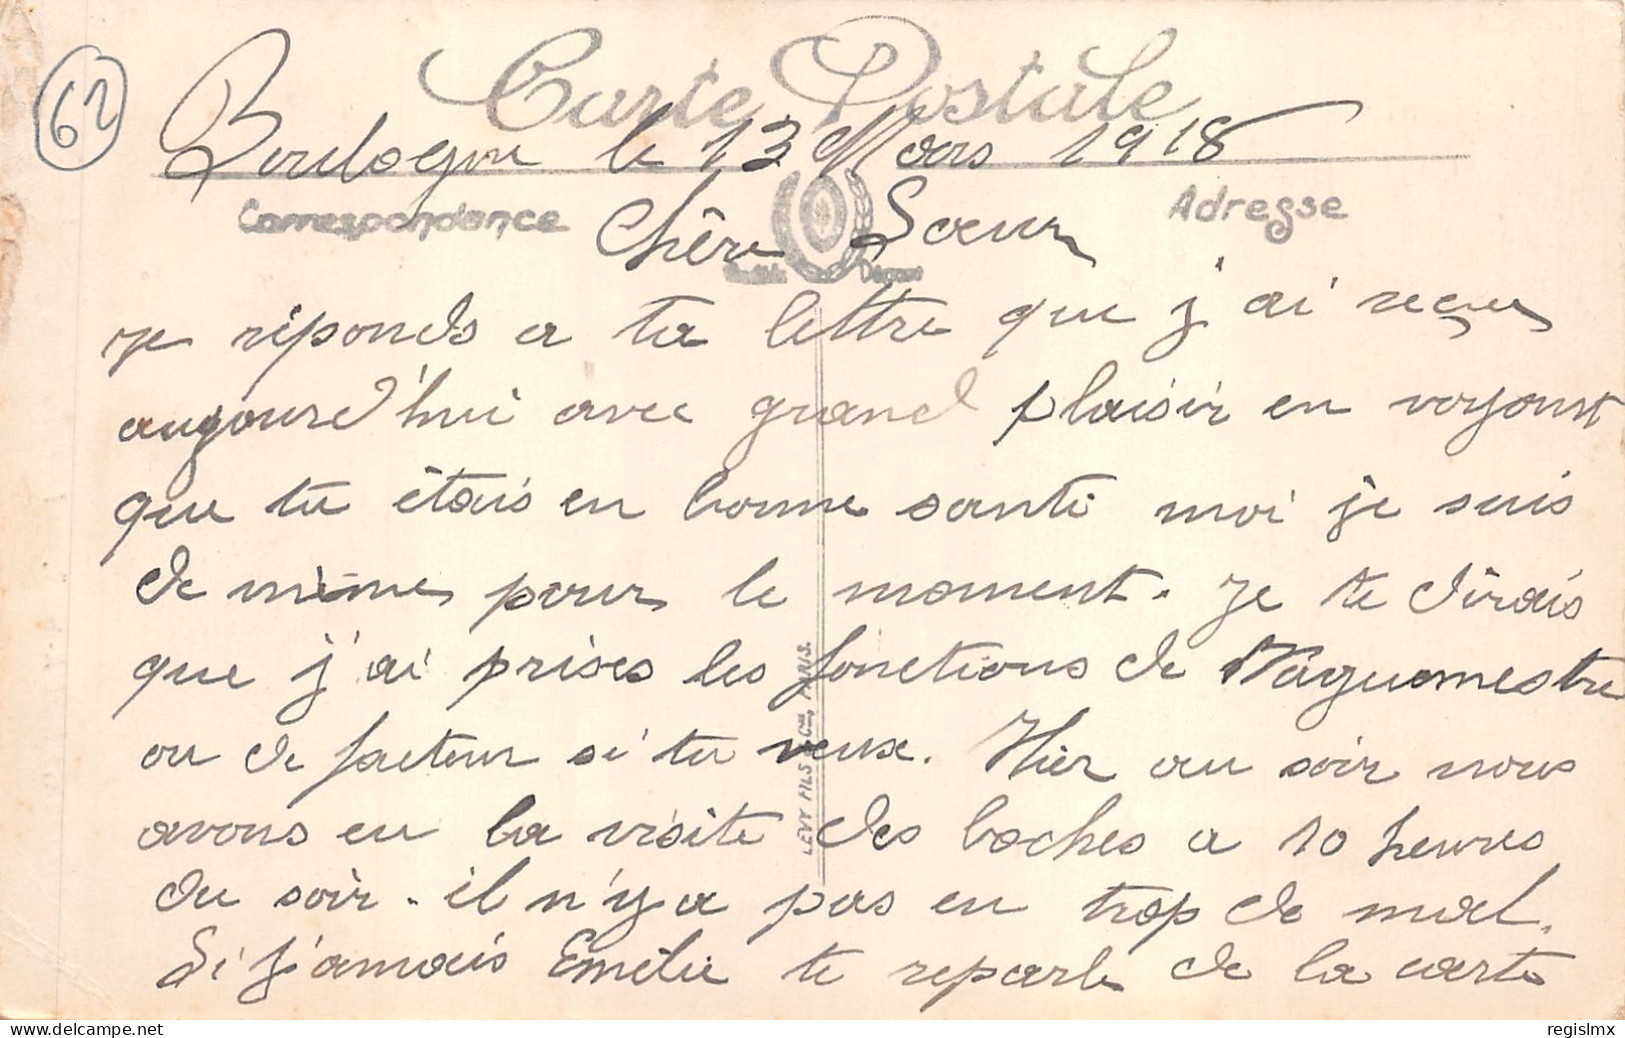 62
Carte Postale
Boulogne le 13 Mars 1918
Correspondance
Adresse
Chère Sœur
je réponds a ta lettre que j'ai reçue
aujourd'hui avec grand plaisir en voyant
que tu étais en bonne santé moi je suis
de même pour le moment. Je te dirais
que j'ai prises les fonctions de Vaguemestre
ou de facteur si tu veux. Hier au soir nous
avons eu la visite des boches a 10 heures
du soir. il n'y a pas eu trop de mal.
Si j'amais Emélie te reparle de la carte
LEVY FILS & Cie, PARIS.
www.delcampe.net
regislmx